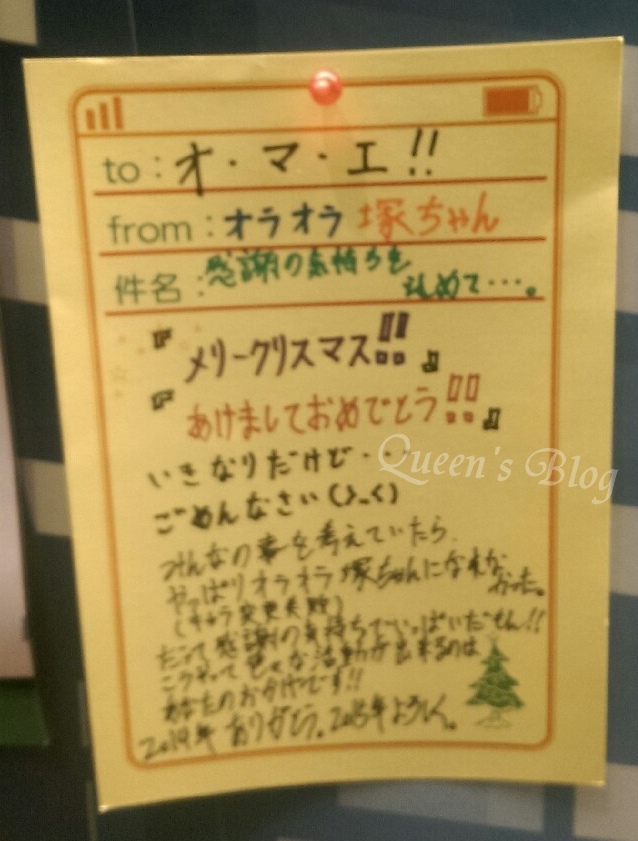 to：オ・マ・エ!!
from：オラオラ 塚ちゃん
件名：感謝の気持ちを
込めて・・・。
『メリークリスマス!!』
『あけましておめでとう!!』
いきなりだけど・・・
ごめんなさい(>_<)
みんなの事を考えていたら、
やっぱりオラオラ塚ちゃんになれな
かった。
(キャラ変更失敗)
だって感謝の気持ちでいっぱいだもん!!
こうやって色々な活動が出来るのは
あなたのおかげです!!
2014年ありがとう。2015年よろしく。
Queen's Blog